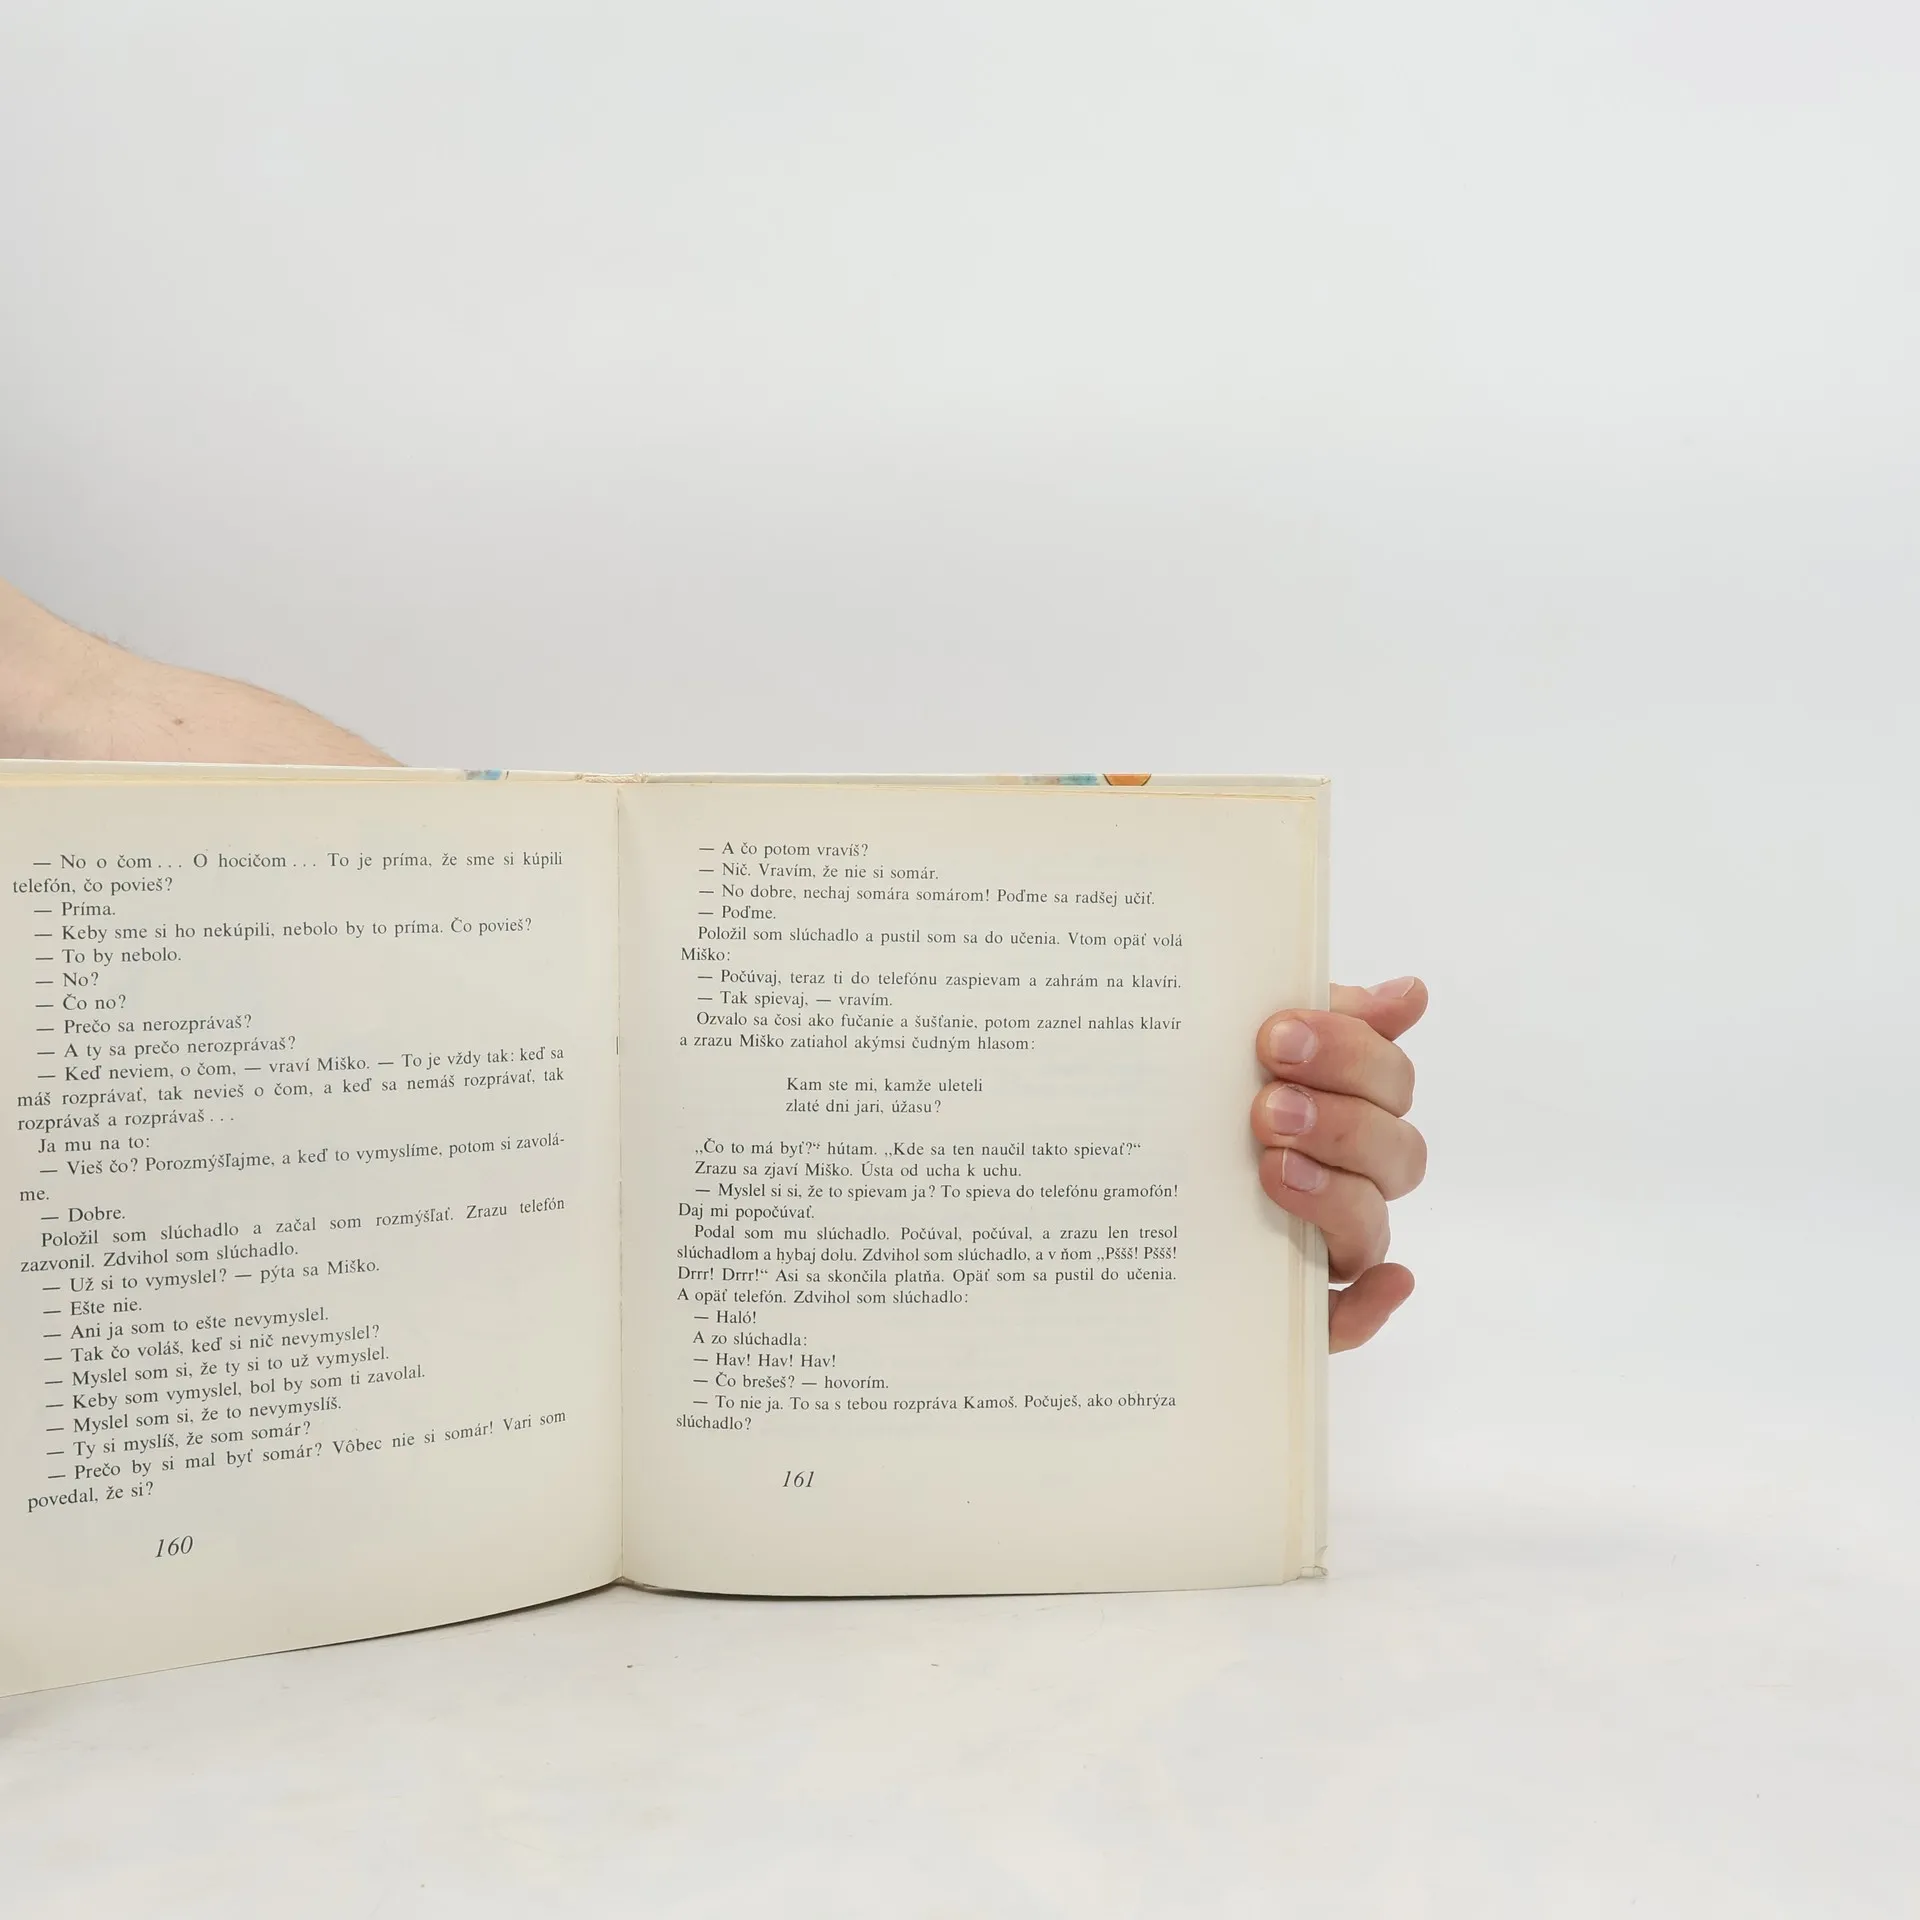 — No o čom... O hocičom... To je príma, že sme si kúpili
telefón, čo povieš?
— Príma.
— Keby sme si ho nekúpili, nebolo by to príma. Čo povieš?
— To by nebolo.
— No?
— Čo no?
— Prečo sa nerozprávaš?
— A ty sa prečo nerozprávaš?
— Keď neviem, o čom, — vraví Miško. — To je vždy tak: keď sa
máš rozprávať, tak nevieš o čom, a keď sa nemáš rozprávať, tak
rozprávaš a rozprávaš...
Ja mu na to:
— Vieš čo? Porozmýšľajme, a keď to vymyslíme, potom si zavolá-
me.
— Dobre.
Položil som slúchadlo a začal som rozmýšľať. Zrazu telefón
zazvonil. Zdvihol som slúchadlo.
— Už si to vymyslel? — pýta sa Miško.
— Ešte nie.
— Ani ja som to ešte nevymyslel.
— Tak čo voláš, keď si nič nevymyslel?
— Myslel som si, že ty si to už vymyslel.
— Keby som vymyslel, bol by som ti zavolal.
— Myslel som si, že to nevymyslíš.
— Ty si myslíš, že som somár?
— Prečo by si mal byť somár? Vôbec nie si somár! Vari som
povedal, že si?
160
— A čo potom vravíš?
— Nič. Vravím, že nie si somár.
— No dobre, nechaj somára somárom! Poďme sa radšej učiť.
— Poďme.
Položil som slúchadlo a pustil som sa do učenia. Vtom opäť volá
Miško:
— Počúvaj, teraz ti do telefónu zaspievam a zahrám na klavíri.
— Tak spievaj, — vravím.
Ozvalo sa čosi ako fučanie a šušťanie, potom zaznel nahlas klavír
a zrazu Miško zatiahol akýmsi čudným hlasom:
Kam ste mi, kamže uleteli
zlaté dni jari, úžasu?
„Čo to má byť?“ hútam. „Kde sa ten naučil takto spievať?“
Zrazu sa zjaví Miško. Ústa od ucha k uchu.
— Myslel si si, že to spievam ja? To spieva do telefónu gramofón!
Daj mi popočúvať.
Podal som mu slúchadlo. Počúval, počúval, a zrazu len tresol
slúchadlom a hybaj dolu. Zdvihol som slúchadlo, a v ňom „Pššš! Pššš!
Drrr! Drrr!“ Asi sa skončila platňa. Opäť som sa pustil do učenia.
A opäť telefón. Zdvihol som slúchadlo:
— Haló!
A zo slúchadla:
— Hav! Hav! Hav!
— Čo brešeš? — hovorím.
— To nie ja. To sa s tebou rozpráva Kamoš. Počuješ, ako obhrýza
slúchadlo?
161